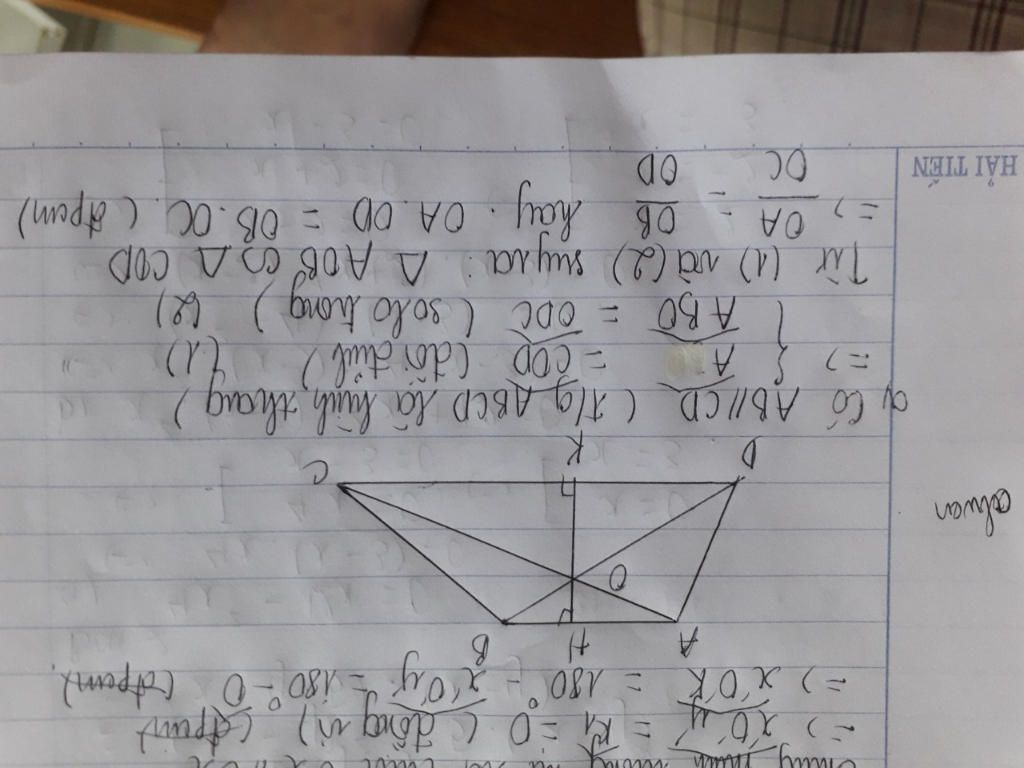 => x'O'y' = K1 = O (đồng vị) (đpcm)
=> x'O'K = 180° - x'O'y' = 180° - O (đpcm)
A H B
O
D K C
a, Có AB // CD (t/g ABCD là hình thang)
=> { A = COD (đối đỉnh) (1)
ABO = ODC (so le trong) (2)
Từ (1) và (2) suy ra : Δ AOB ∽ Δ COD
=> OA/OC = OB/OD hay . OA . OD = OB . OC . (đpcm)
HẢI TIẾN